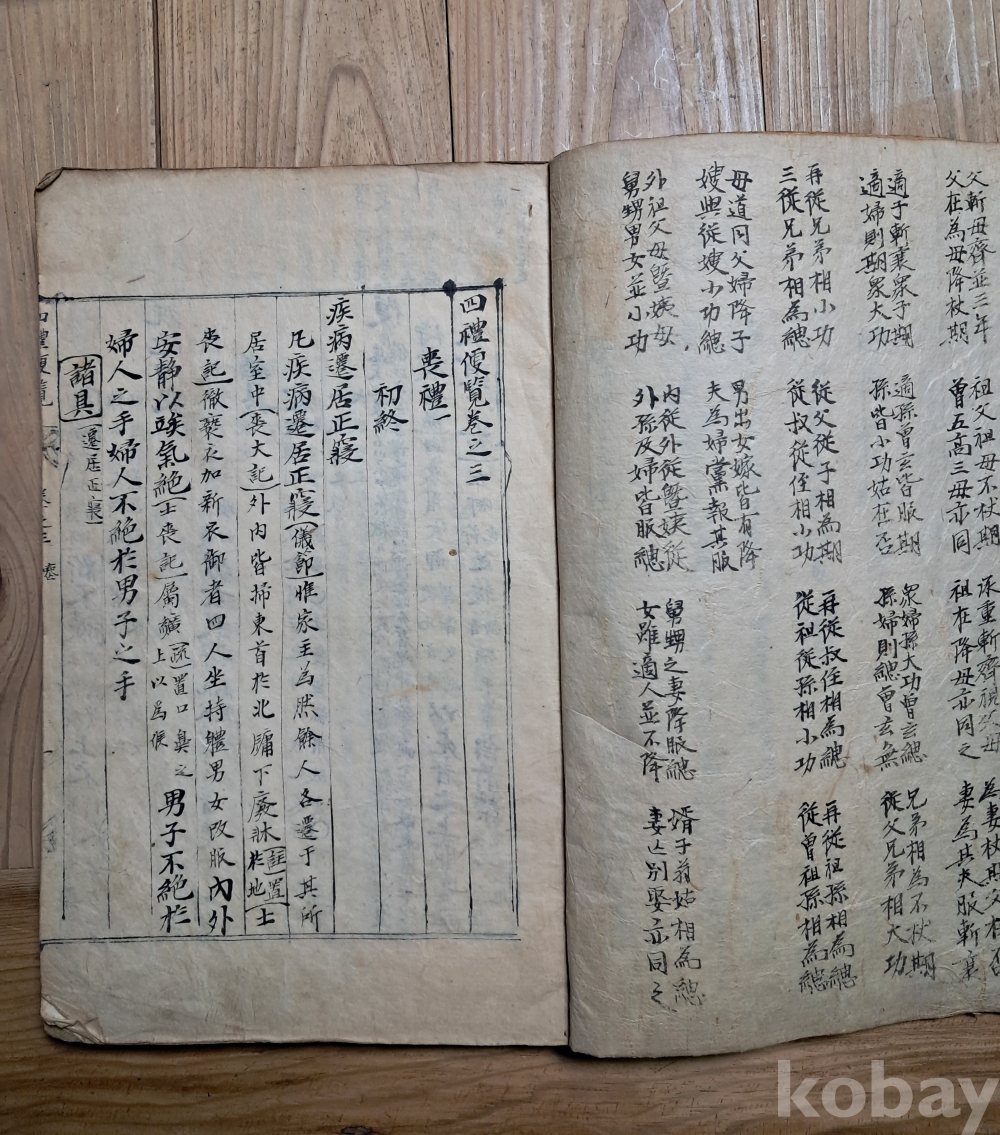 父斬母齊並三年 祖父母不杖期 承重斬齊祖 母 為妻杖期父在否
父在為母降杖期 曾五高三母亦同 祖在降母亦同之 妻為其夫服斬衰
適子斬衰衆子期 適孫曾玄皆服期 衆婦孫大功曾玄緦 兄弟相為不杖期
適婦則期衆大功 孫皆小功姑在否 孫婦則緦曾玄無 從父兄弟相大功
再從兄弟相小功 從父從子相為期 再從叔侄相為緦 再從祖孫相為緦
三從兄弟相為緦 從叔從侄相小功 從祖從孫相小功 從曾祖孫相為緦
母道同父婦降子 男出女嫁皆有降
嫂與從嫂小功緦 夫為婦黨報其服
外祖父母曁姨母 內從外從曁姨從 舅甥之妻降服緦 婿子翁姑相為緦
舅甥男女並小功 外孫及婦皆服緦 女雖適人並不降 妻亡別娶亦同之
四禮便覽卷之三
喪禮一
初終
疾病遷居正寢
凡疾病遷居正寢儀節惟家主為然餘人各遷于其所
居室中喪大記外內皆掃東首於北牖下廢牀於地註置士
喪記徹褻衣加新衣御者四人坐持體男女改服內外
安靜以竢氣絶士喪記屬纊疏置口鼻之上以為候男子不絶於
婦人之手婦人不絶於男子之手
諸具遷居正寢
四禮便覽 卷之三 喪
kobay